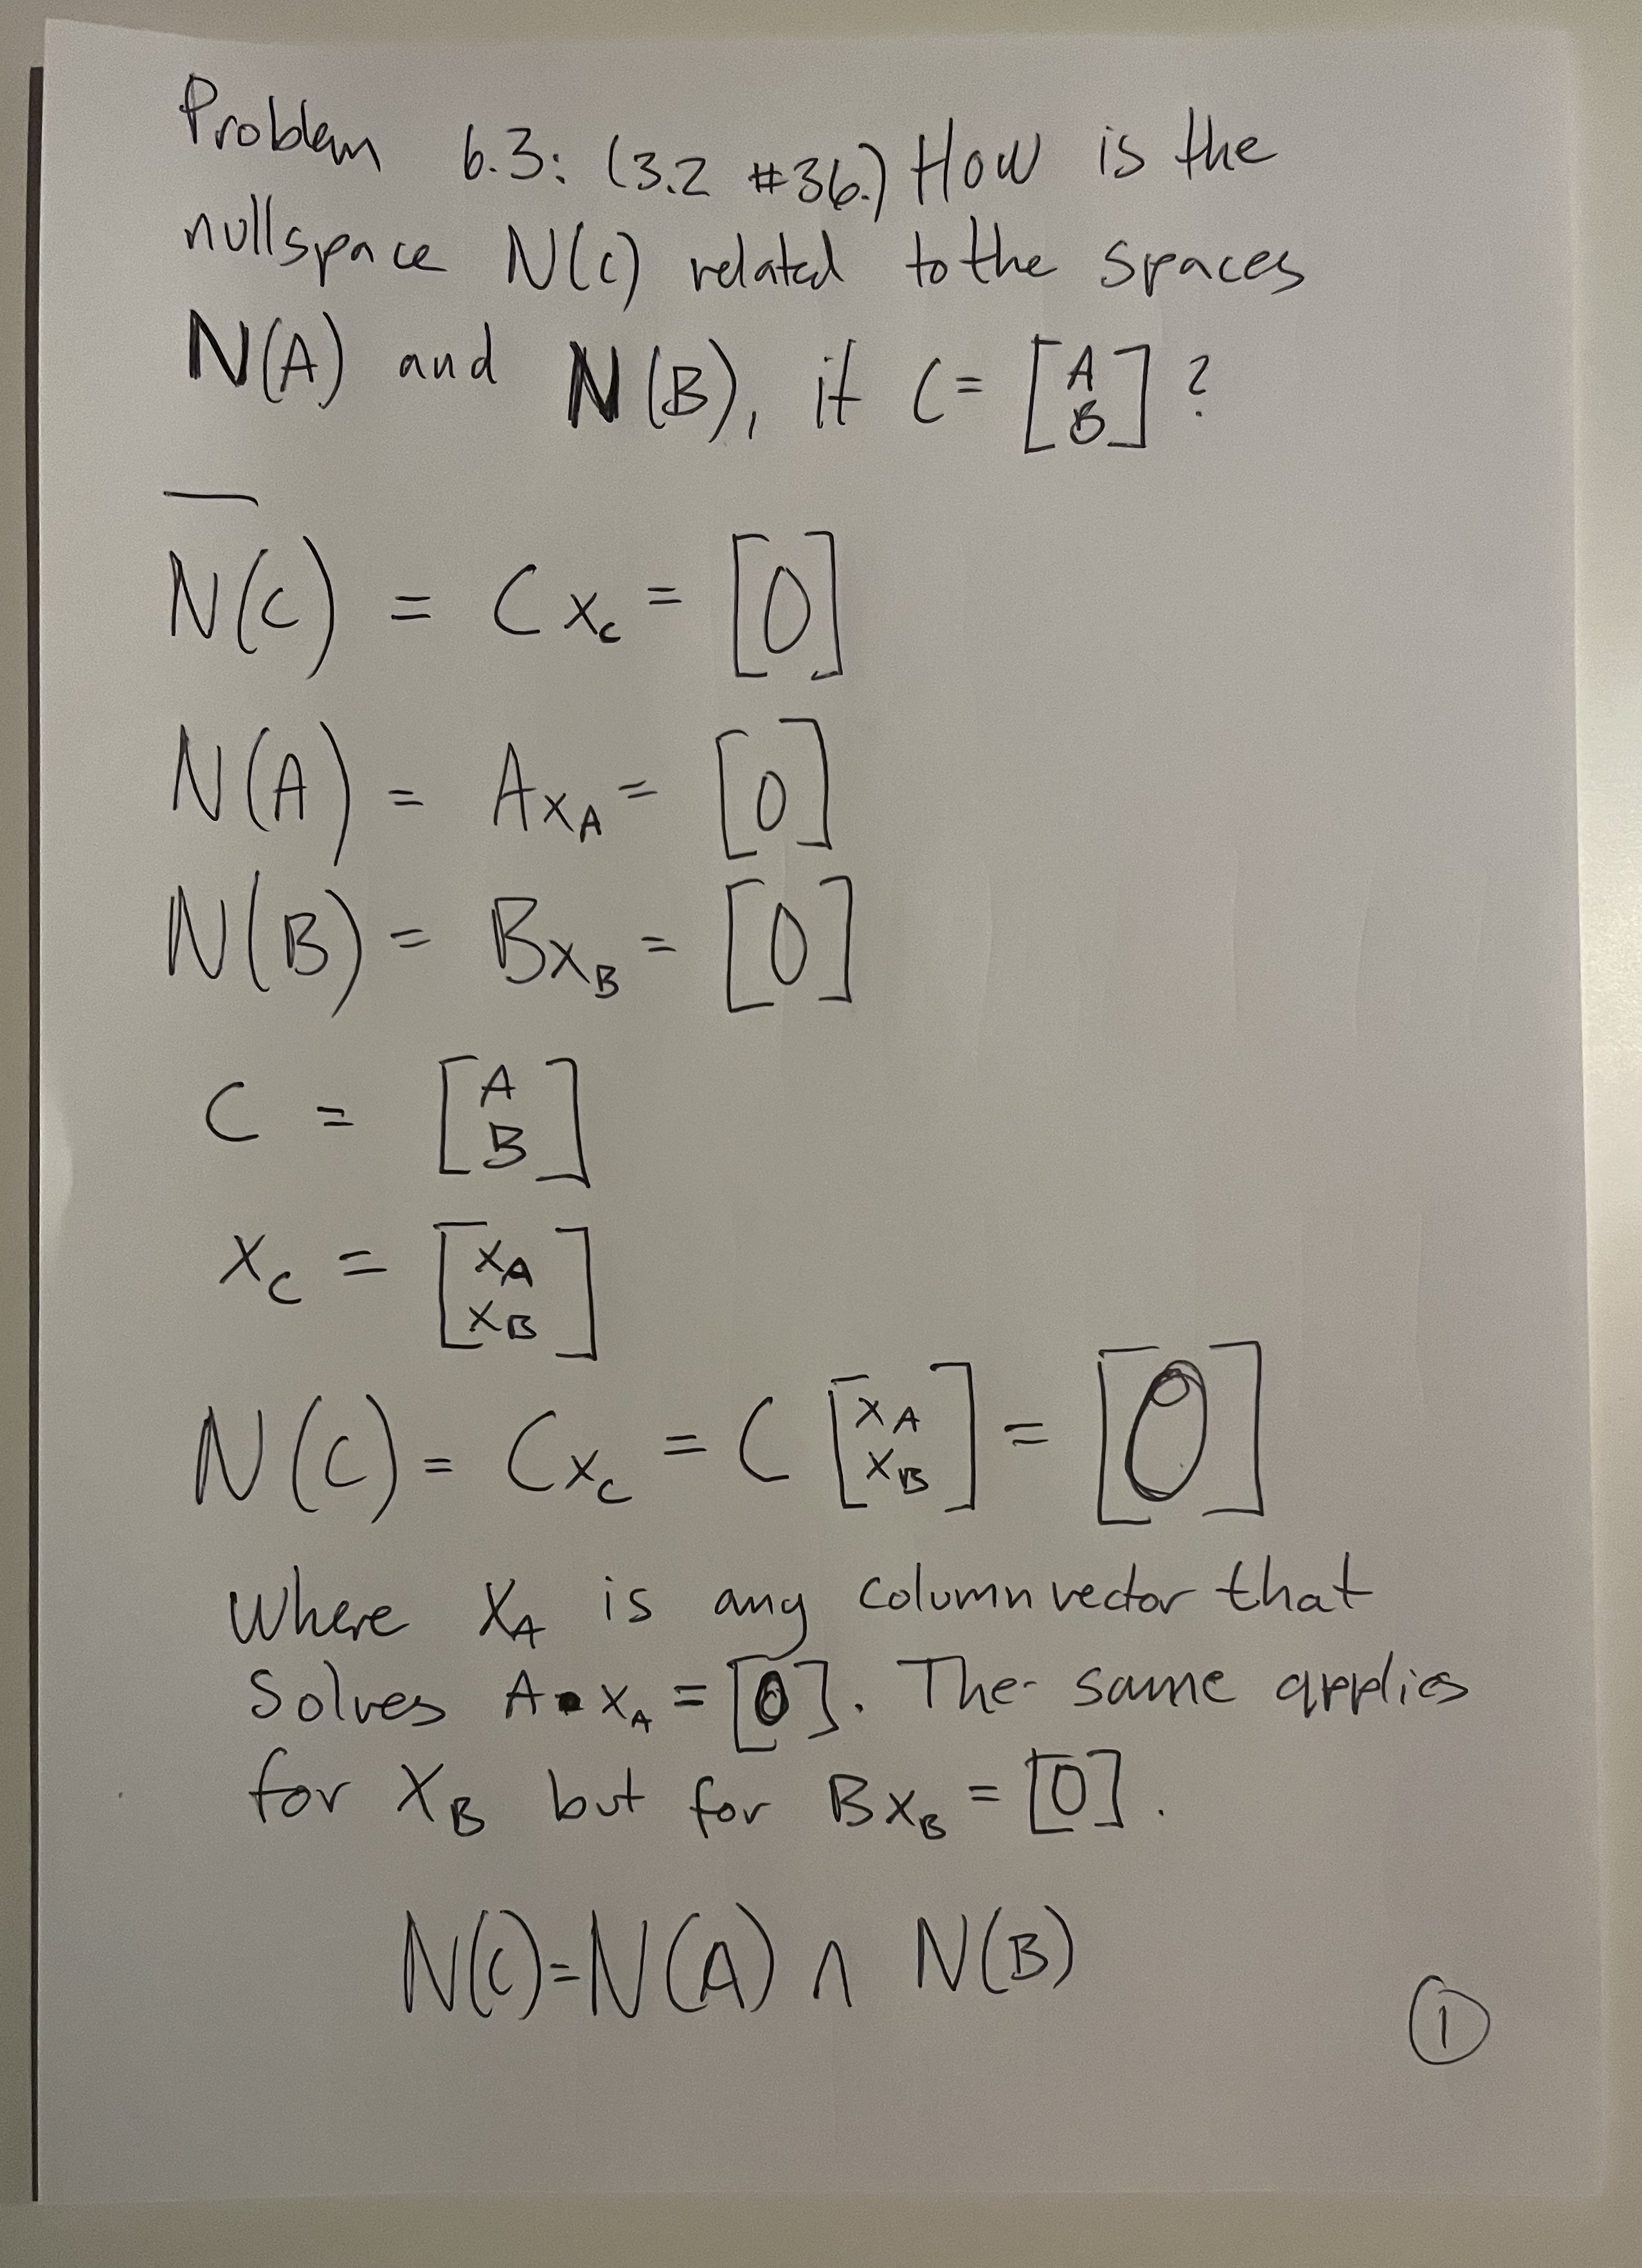 Problem 6.3: (3.2 #36.) How is the
nullspace N(C) related to the spaces
N(A) and N(B), if C = [A
B] ?
N(C) = Cx_C = [0]
N(A) = Ax_A = [0]
N(B) = Bx_B = [0]
C = [A
B]
x_C = [x_A
x_B]
N(C) = Cx_C = C [x_A
x_B] = [0]
Where x_A is any column vector that
solves A • x_A = [0]. The same applies
for x_B but for Bx_B = [0].
N(C) = N(A) ∩ N(B)
①